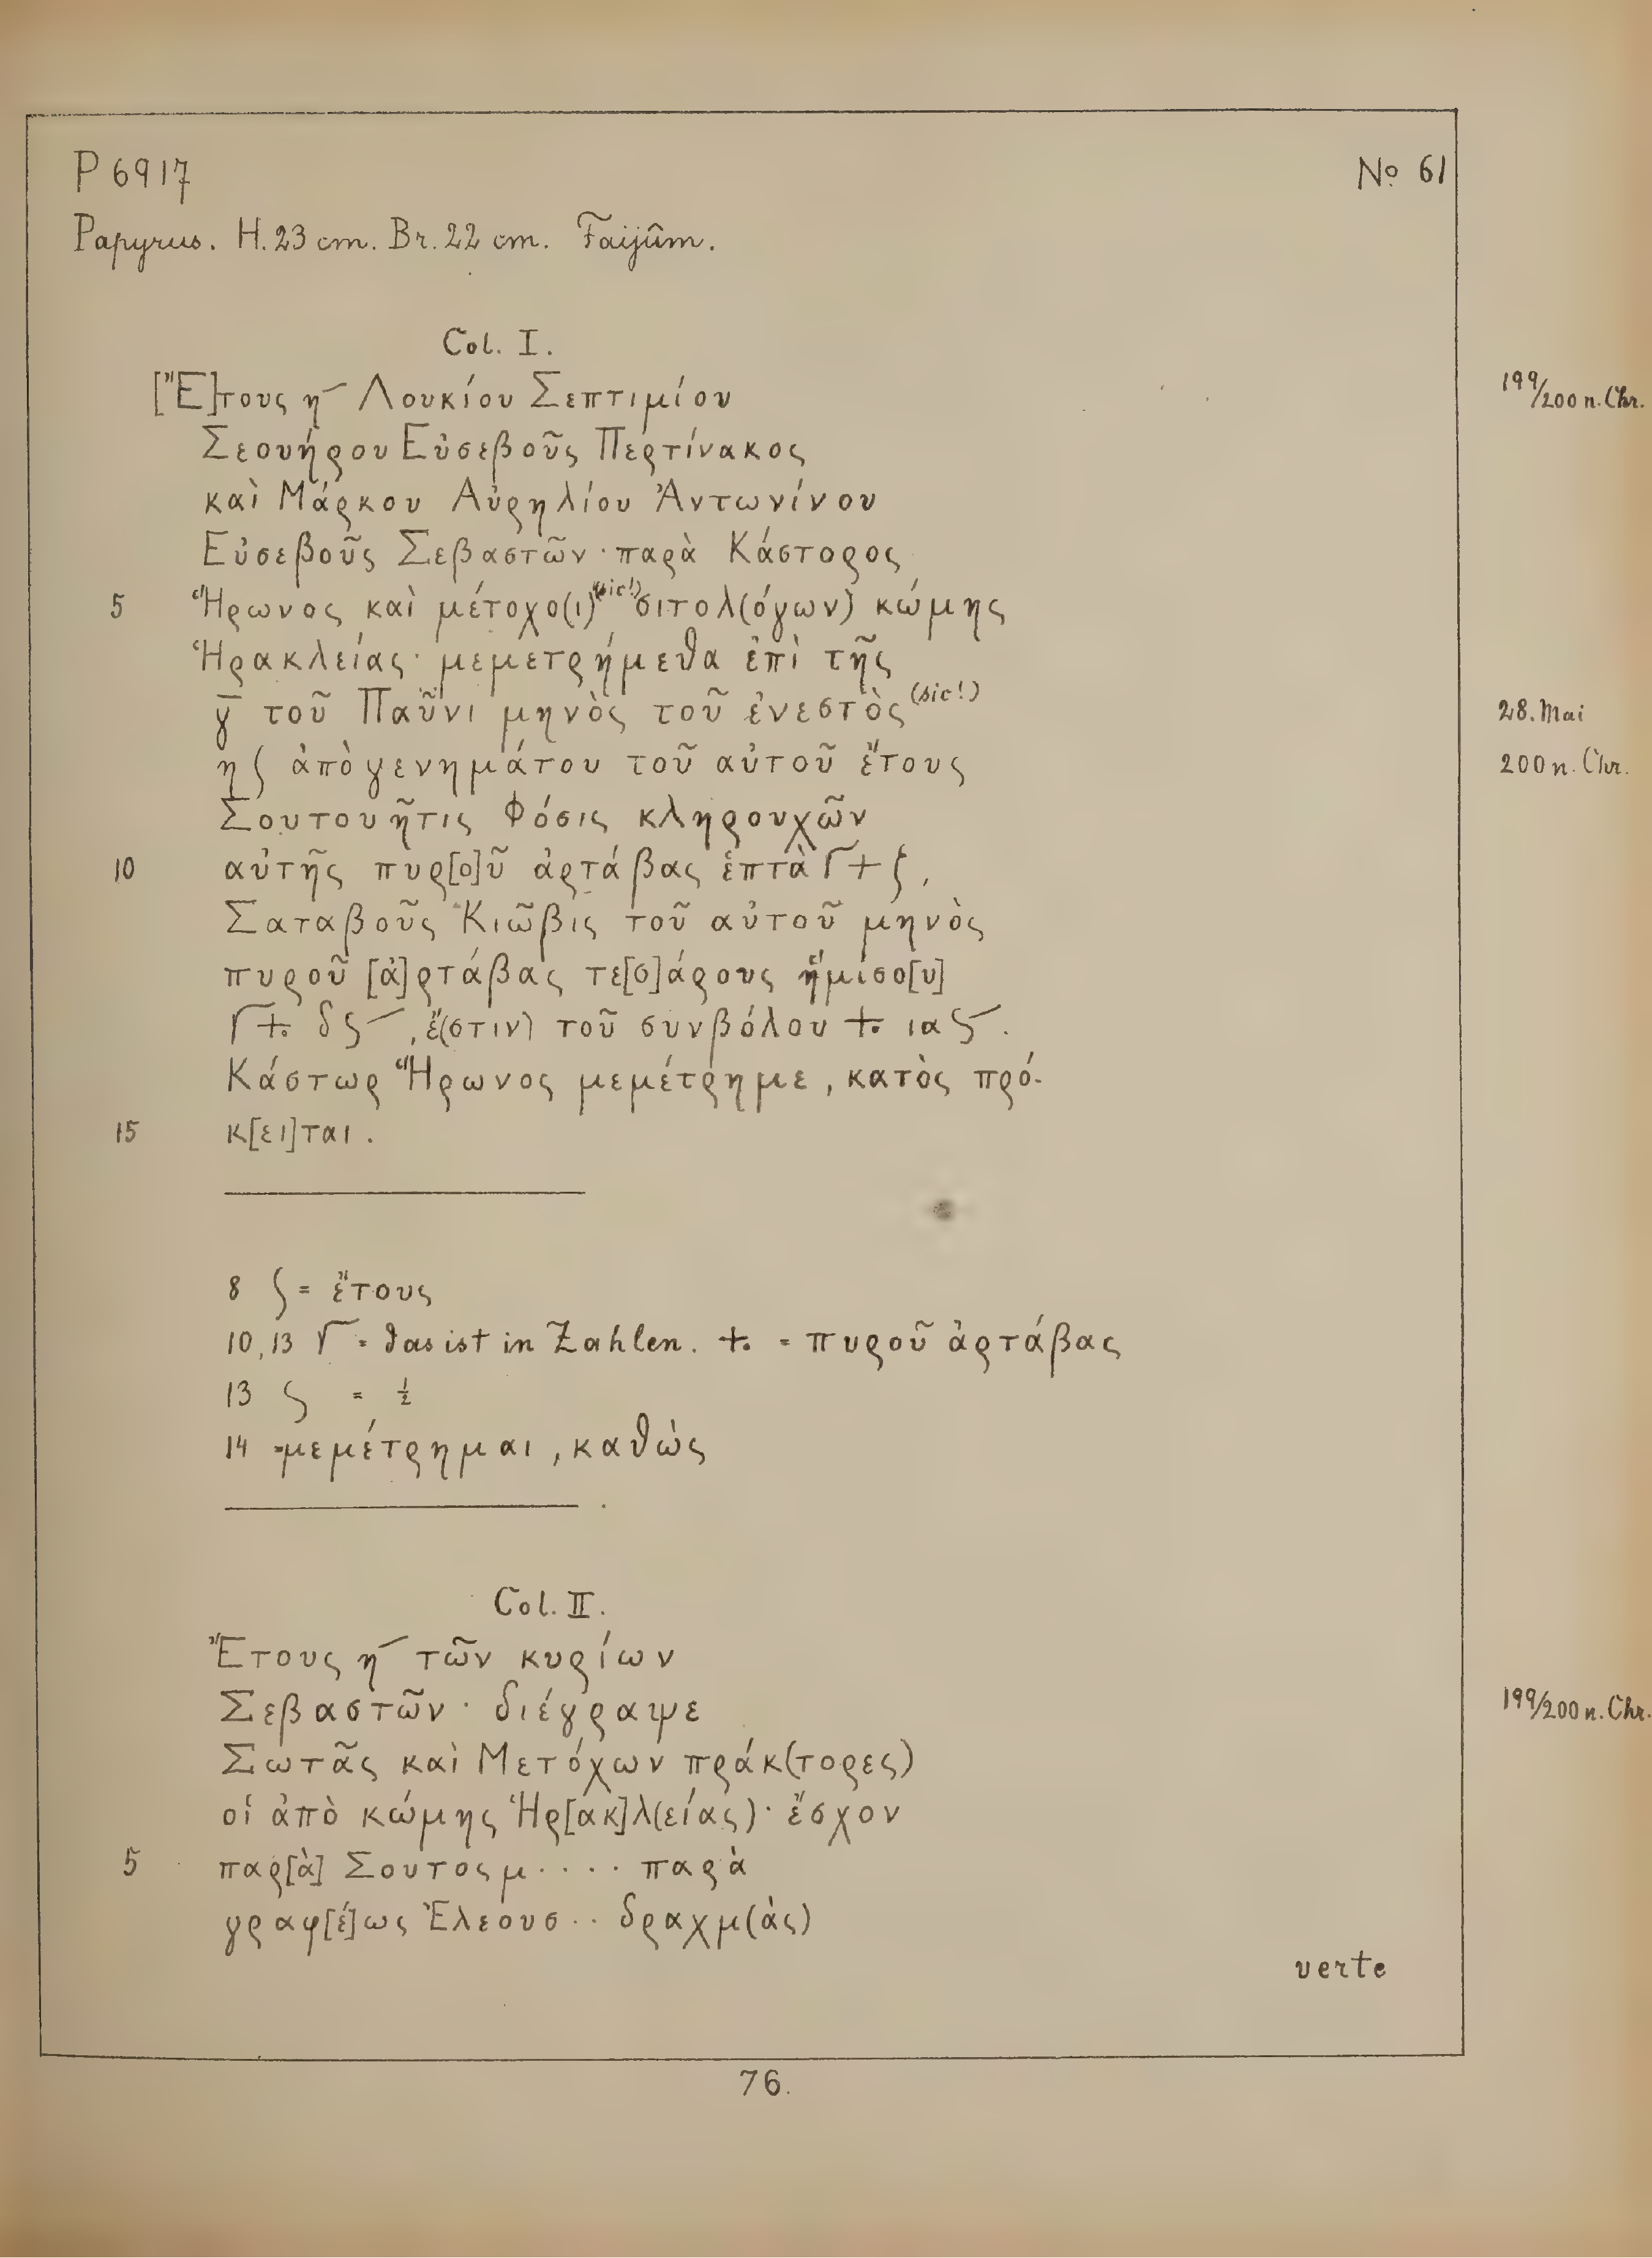 P 6917
No 61
Papyrus. H. 23 cm. Br. 22 cm. Faijûm.
Col. I.
[Ἔ]τους η Λουκίου Σεπτιμίου 199/200 n. Chr.
Σεουήρου Εὐσεβοῦς Περτίνακος
καὶ Μάρκου Αὐρηλίου Ἀντωνίνου
Εὐσεβοῦς Σεβαστῶν · παρὰ Κάστορος
5 Ἥρωνος καὶ μέτοχο(ι) (sic!) σιτολ(όγων) κώμης
Ἡρακλείας · μεμετρήμεθα ἐπὶ τῆς
γ̅ τοῦ Παῦνι μηνὸς τοῦ ἐνεστὸς (sic!) 28. Mai
η ʃ ἀπὸ γενημάτου τοῦ αὐτοῦ ἔτους 200 n. Chr.
Σουτουῆτις Φόσις κληρουχῶν
10 αὐτῆς πυρ[ο]ῦ ἀρτάβας ἑπτὰ Γ + ζ,
Σαταβοῦς Κιῶβις τοῦ αὐτοῦ μηνὸς
πυροῦ [ἀ]ρτάβας τε[σ]άρους ἥμισο[υ]
Γ +. δς, ἔ(στιν) τοῦ συνβόλου +. ιας.
Κάστωρ Ἥρωνος μεμέτρημε, κατὸς πρό-
15 κ[ει]ται.
8 ʃ = ἔτους
10, 13 Γ = das ist in Zahlen. +. = πυροῦ ἀρτάβας
13 ς = ½
14 = μεμέτρημαι, καθὼς
Col. II.
Ἔτους η τῶν κυρίων
Σεβαστῶν · διέγραψε 199/200 n. Chr.
Σωτᾶς καὶ Μετόχων πράκ(τορες)
οἱ ἀπὸ κώμης Ἡρ[ακ]λ(είας) · ἔσχον
5 παρ[ὰ] Σουτος μ · · · · παρὰ
γραφ[έ]ως Ἐλεουσ · · δραχμ(ὰς)
verte
76.